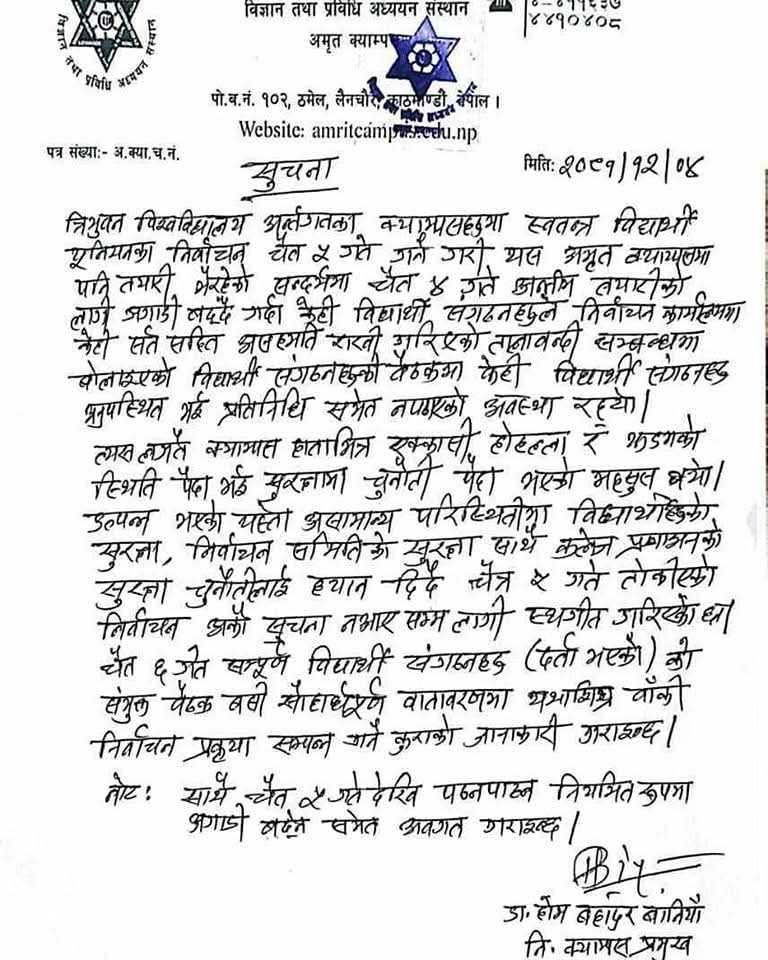 विज्ञान तथा प्रविधि अध्ययन संस्थान
४४१०४०८
अमृत क्याम्पस
पो.ब.नं. १०२, ठमेल, लैनचौर, काठमाण्डौ, नेपाल ।
Website: amritcampus.edu.np
पत्र संख्या:- अ.क्या.च.नं.
मिति: २०८१/१२/०४
सुचना
त्रिभुवन विश्वविद्यालय अर्न्तगतका क्याम्पसहरुमा स्वतन्त्र विद्यार्थी
यूनियनका निर्वाचन चैत ५ गते गर्ने गरी यस अमृत क्याम्पसमा
पनि तयारी भैरहेको सन्दर्भमा चैत ४ गते अन्तीम तयारीको
लागि अगाडी बढ्दै गर्दा केही विद्यार्थी संगठनहरुले निर्वाचन कार्यक्रममा
केही सर्त सहित असहमति राखी गरिएको तालाबन्दी सम्बन्धमा
बोलाइएको विद्यार्थी संगठनहरुको बैठकमा केही विद्यार्थी संगठनहरु
अनुपस्थित भई प्रतिनिधि समेत नपठाएको अवस्था रह्यो ।
त्यस लगतै क्याम्पस हाताभित्र एक्कासी होहल्ला र झडपको
स्थिति पैदा भई सुरक्षामा चुनौती पैदा भएको महसुस भयो ।
उत्पन्न भएका यस्ता असामान्य परिस्थितीमा विद्यार्थीहरुको
सुरक्षा, निर्वाचन समितिको सुरक्षा साथै कलेज प्रशासनको
सुरक्षा चुनौतीलाई ध्यान दिदै चैत्र ५ गते तोकीएको
निर्वाचन अर्को सूचना नभए सम्म लागी स्थगीत गरिएको छ ।
चैत ६ गते सम्पूर्ण विद्यार्थी संगठनहरु (दर्ता भएको) को
संयुक्त बैठक बसी सौहार्धपूर्ण वातावरणमा यथाशिघ्र बाँकी
निर्वाचन प्रकृया सम्पन्न गर्ने कुराको जानाकारी गराइन्छ ।
नोट: साथै चैत ५ गते देखि पठनपाठन नियमित रुपमा
अगाडी बढ्ने समेत अवगत गराइन्छ ।
डा. होम बहादुर बानियाँ
नि. क्याम्पस प्रमुख